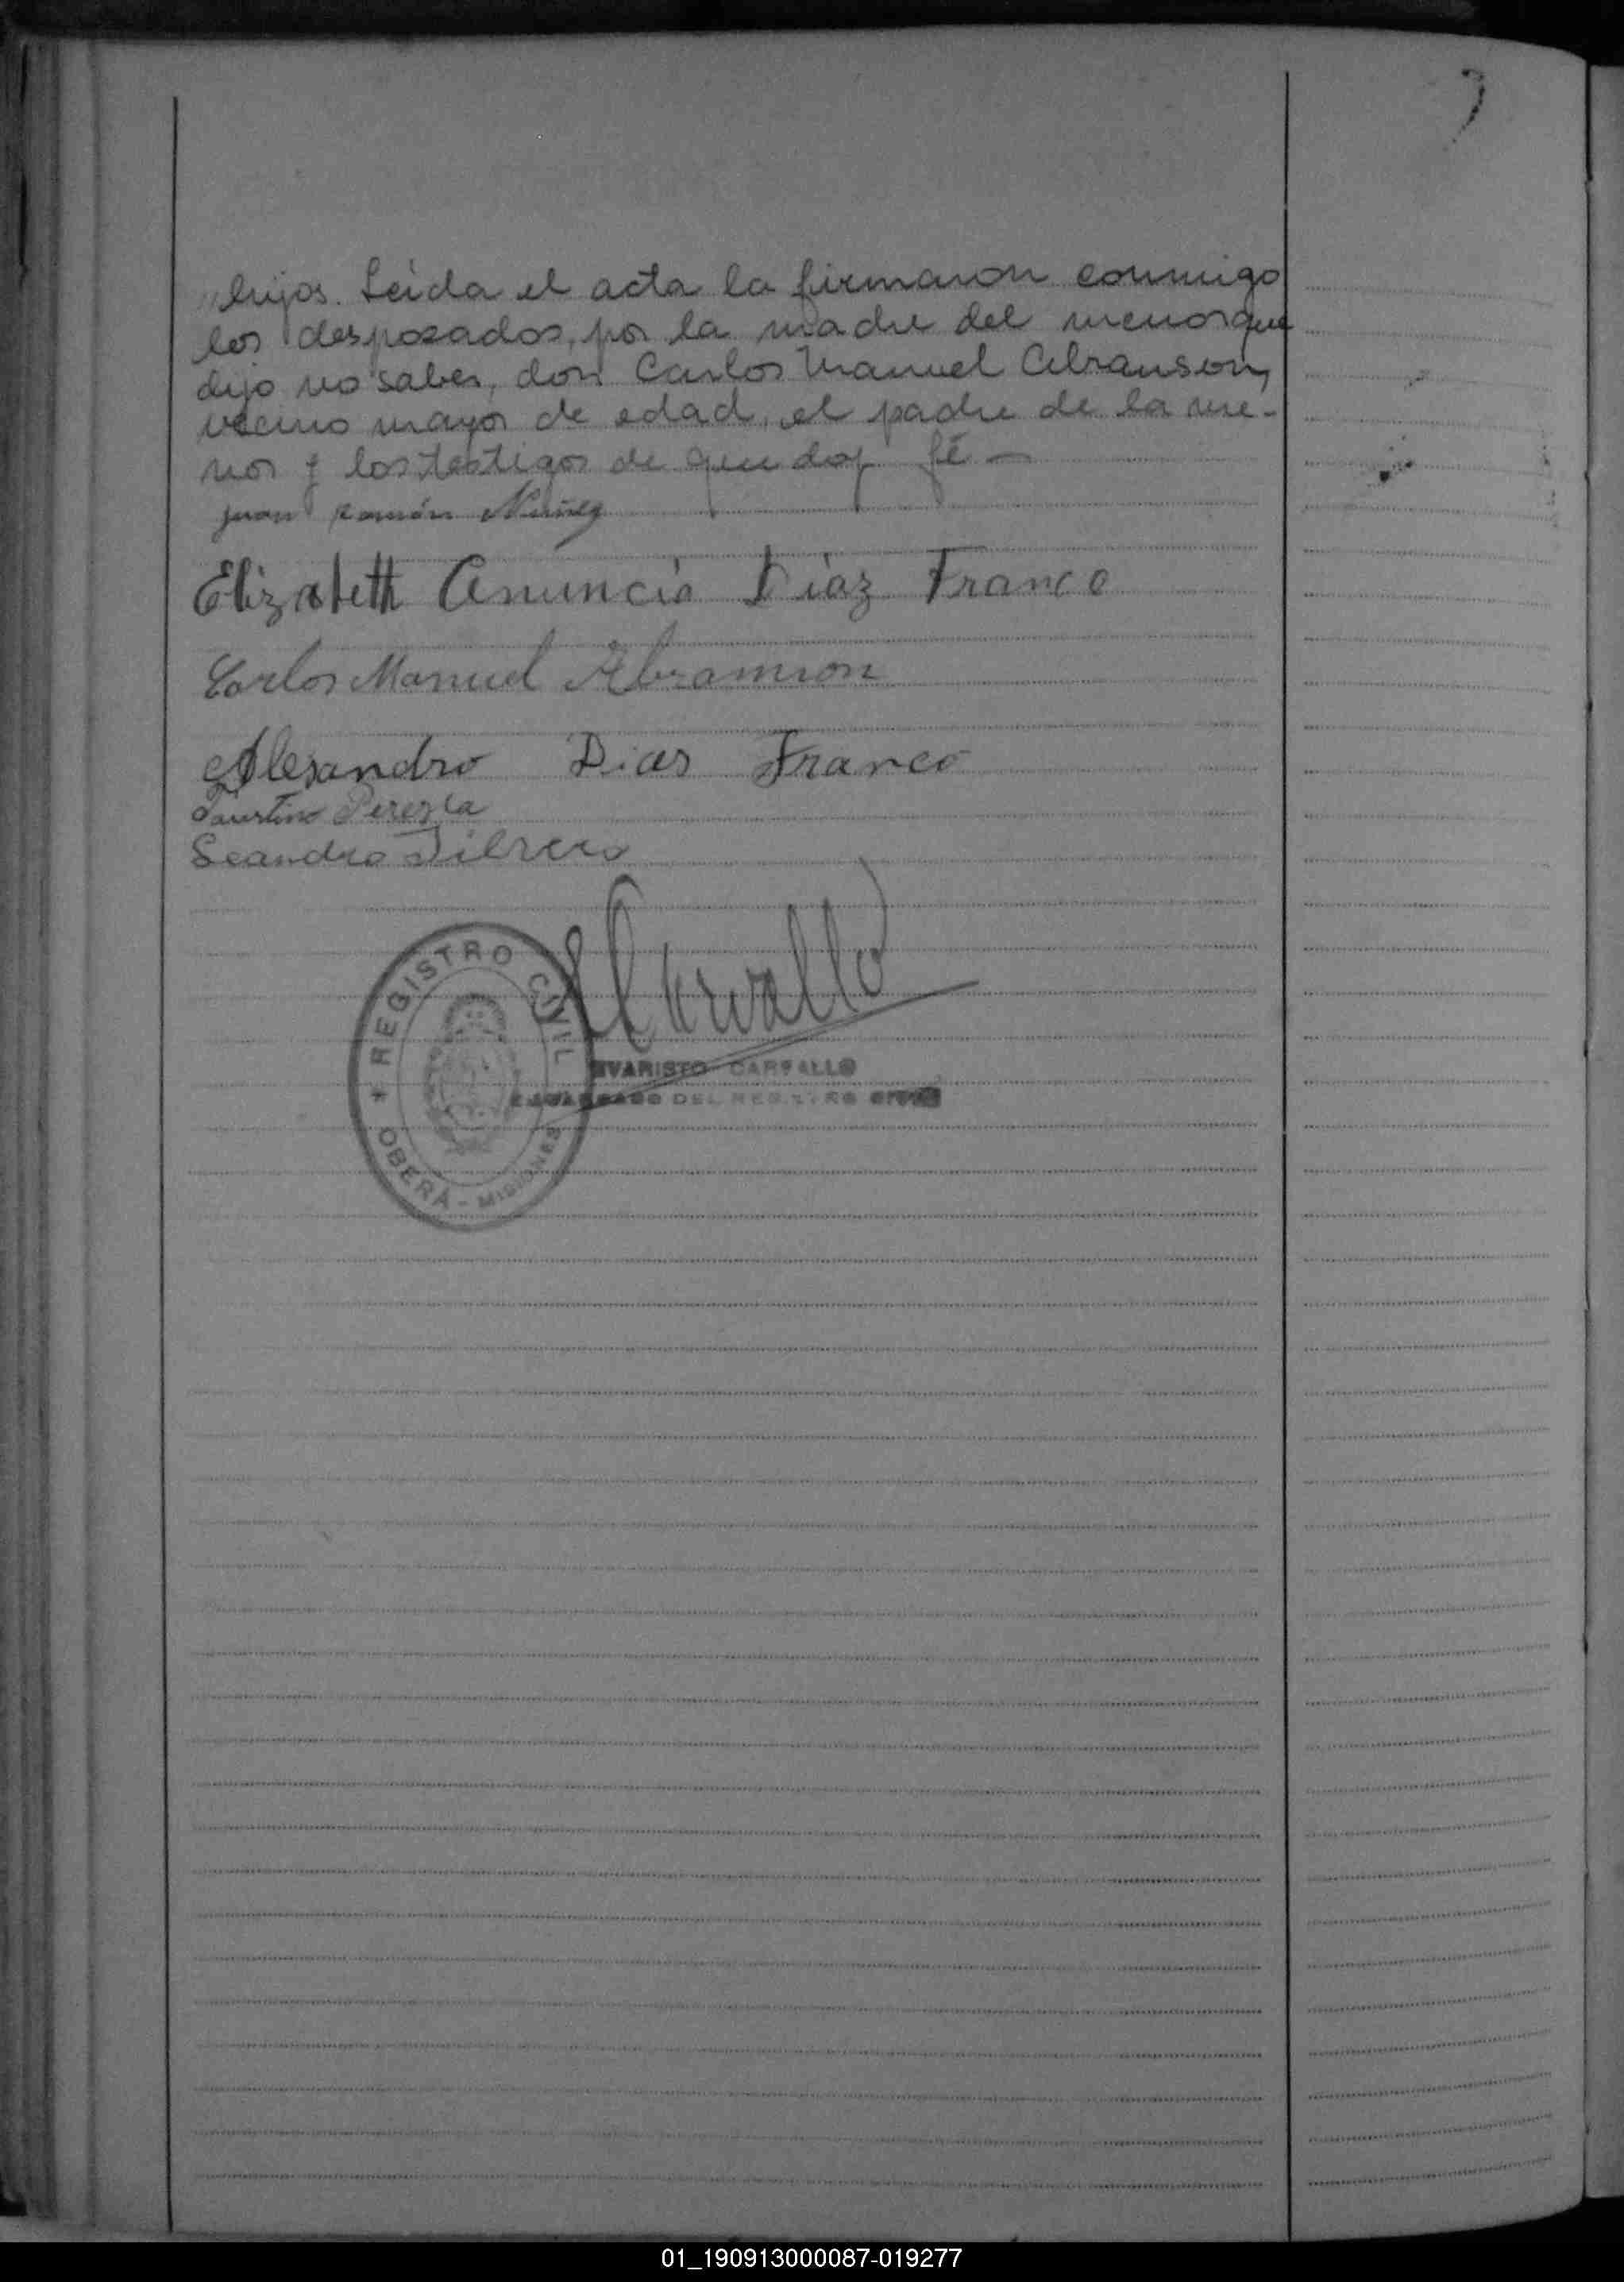 hijos. Leida el acta la firmaron conmigo
los desposados, por la madre del menor que
dijo no saber, don Carlos Manuel Abranson,
vecino mayor de edad, el padre de la me-
nor y los testigos de que doy fé —
Juan Ramón Nuñez
Elizabeth Anuncia Diaz Franco
Carlos Manuel Abramson
Alesandro Dias Franco
Faustino
Leandro
Carvallo
* REGISTRO CIVIL
OBERÁ - MISIONES
EVARISTO CARVALLO
ENCARGADO DEL REGISTRO CIVIL
01_190913000087-019277